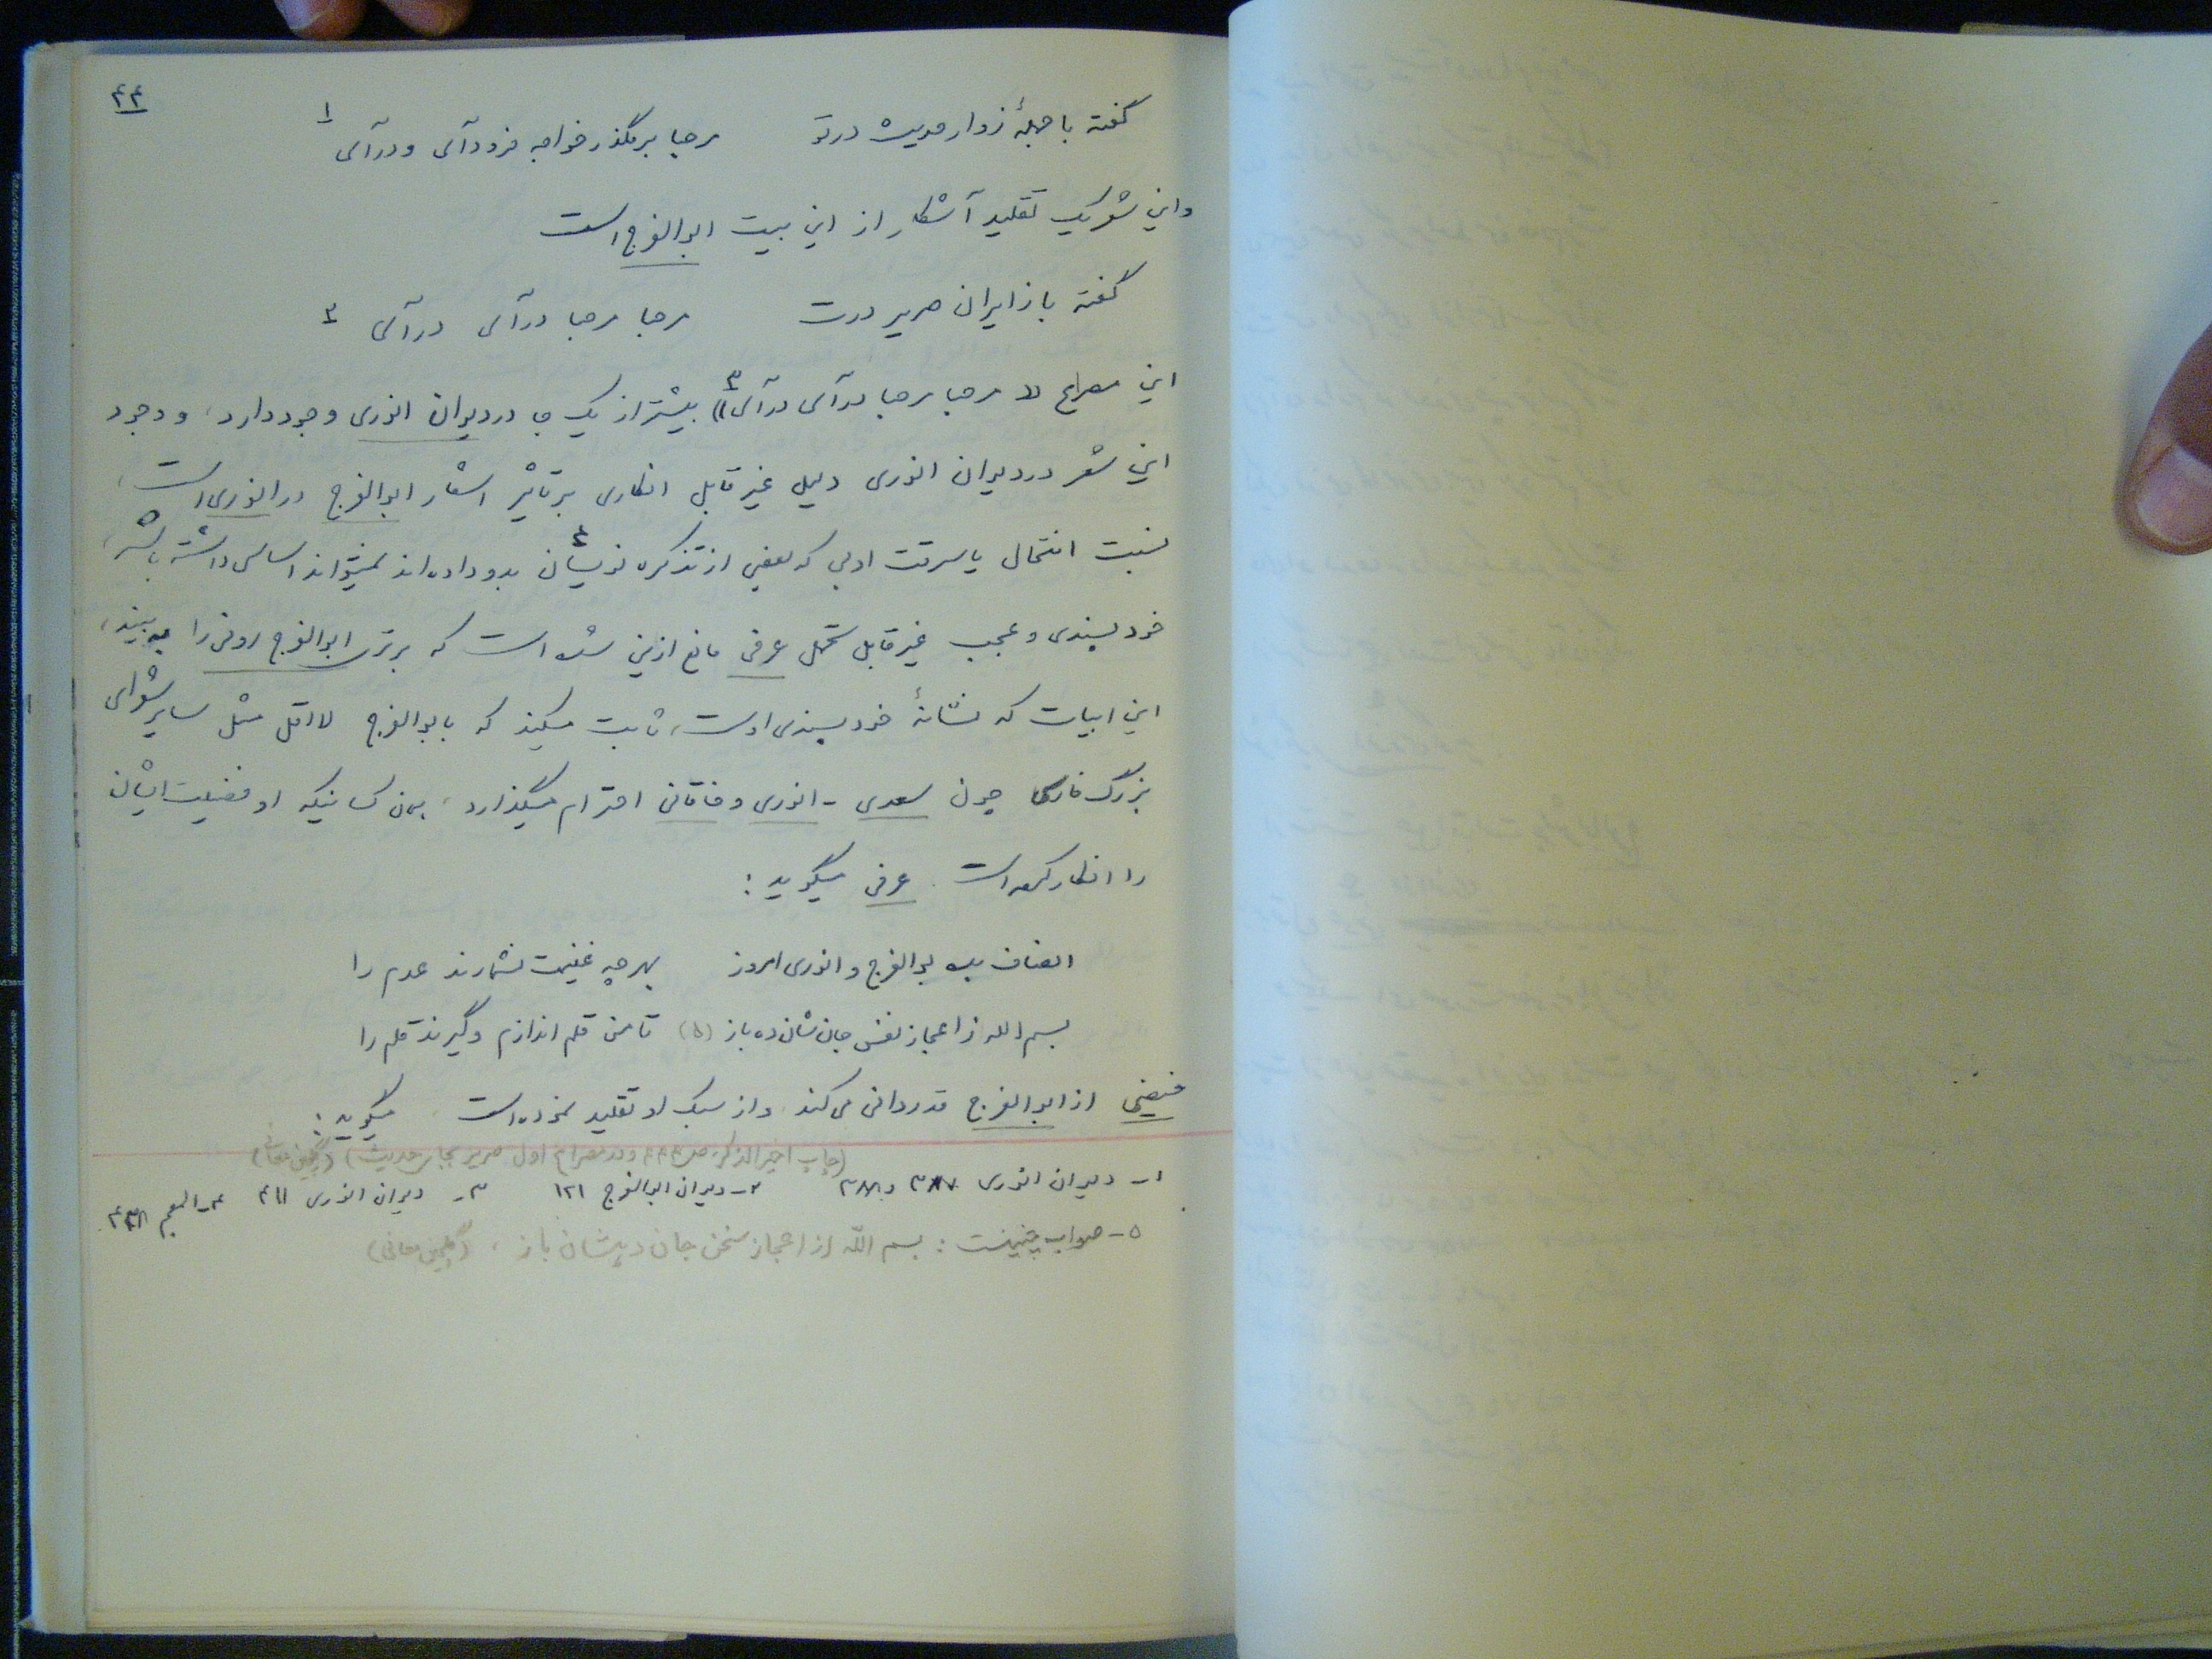 ۴۴
گفته با جملهٔ زوار حدیث در تو مرحبا برمگذر خواجه فرود آی و درآی ۱
و این شعر یک تقلید آشکار از این بیت ابوالفرج است
گفته با زایران صریر درت مرحبا مرحبا درآی درآی ۲
این مصراع « مرحبا مرحبا درآی درآی ۳» بیشتر از یک جا در دیوان انوری وجود دارد، و وجود
این شعر در دیوان انوری دلیل غیر قابل انکاری بر تأثیر اشعار ابوالفرج در انوری است،
نسبت انتحال یا سرقت ادبی که بعضی از تذکره نویسان ۴ بدو داده‌اند نمیتواند اساسی داشته باشد،
خود پسندی و عجب غیر قابل تحمل عرفی مانع ازین شده است که برتری ابوالفرج رونی را به بیند،
این ابیات که نشانهٔ خود پسندی اوست، ثابت میکند که بابوالفرج لااقل مثل سایر شعرای
بزرگ فارسی چون سعدی - انوری و خاقانی احترام میگذارد، همان کسانیکه او فضیلت ایشان
را انکار کرده است. عرفی میگوید:
انصاف بده بوالفرج و انوری امروز بهر چه غنیمت نشمارند عدم را
بسم الله ز اعجاز نفس جان شان ده باز (۵) تا من قلم اندازم و گیرند قلم را
فیضی از ابوالفرج قدردانی می‌کند و از سبک او تقلید نموده است میگوید:
(چاپ اخیر الذکر، ص ۴۴۴ و در مصراع اول صریر بجای حدیث) (گلچین معانی)
۱- دیوان انوری ۳۸۷ و ۳۸۸ ۲- دیوان ابوالفرج ۱۲۱ ۳- دیوان انوری ۴۱۱ ۴- المعجم ۴۳۸
۵- صواب چنینست: بسم الله از اعجاز سخن جان دهشان باز، (گلچین معانی)